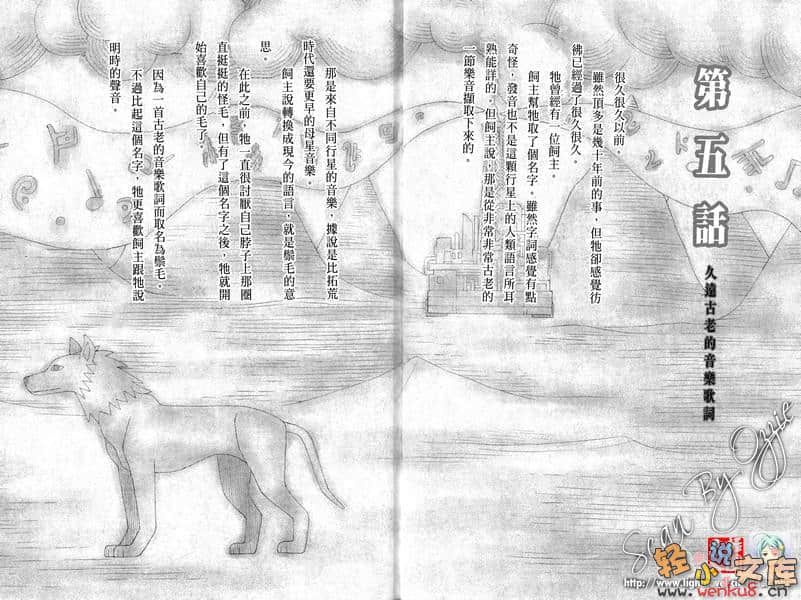 第五話
久遠古老的音樂歌詞
很久很久以前。
雖然頂多是幾十年前的事，但牠卻感覺彷
彿已經過了很久很久。
牠曾經有一位飼主。
飼主幫牠取了個名字。雖然字詞感覺有點
奇怪，發音也不是這顆行星上的人類語言所耳
熟能詳的，但飼主說，那是從非常非常古老的
一節樂音擷取下來的。
那是來自不同行星的音樂，據說是比拓荒
時代還要更早的母星音樂。
飼主說轉換成現今的語言，就是鬃毛的意
思。
在此之前，牠一直很討厭自己脖子上那圈
直挺挺的怪毛，但有了這個名字之後，牠就開
始喜歡自己的毛了。
因為一首古老的音樂歌詞而取名為鬃毛。
不過比起這個名字，牠更喜歡飼主跟牠說
明時的聲音。
Scan By Ozzie
轻小说文库
www.wenku8.cn